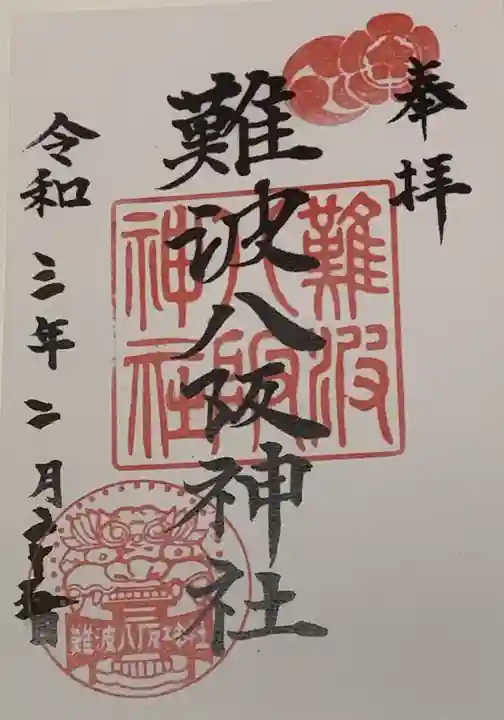 奉拝
難波八阪神社
難波
八阪
神社
令和三年二月
日
難波八阪神社